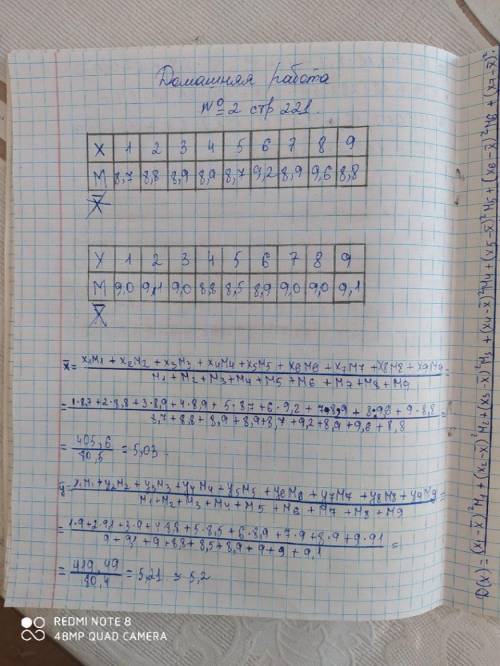 Домашняя работа
№ 2 стр 221.
X 1 2 3 4 5 6 7 8 9
M 8,7 8,8 8,9 8,9 8,7 9,2 8,9 9,6 8,8
X̄
Y 1 2 3 4 5 6 7 8 9
M 9,0 9,1 9,0 8,8 8,5 8,9 9,0 9,0 9,1
X̄
x̄ = x1M1 + x2M2 + x3M3 + x4M4 + x5M5 + x6M6 + x7M7 + x8M8 + x9M9
M1 + M2 + M3 + M4 + M5 + M6 + M7 + M8 + M9
= 1·8,7 + 2·8,8 + 3·8,9 + 4·8,9 + 5·8,7 + 6·9,2 + 7·8,9 + 8·9,6 + 9·8,8 =
8,7 + 8,8 + 8,9 + 8,9 + 8,7 + 9,2 + 8,9 + 9,6 + 8,8
= 405,6 = 5,03
80,5
ȳ = y1M1 + y2M2 + y3M3 + y4M4 + y5M5 + y6M6 + y7M7 + y8M8 + y9M9 =
M1 + M2 + M3 + M4 + M5 + M6 + M7 + M8 + M9
= 1·9 + 2·9,1 + 3·9 + 4·8,8 + 5·8,5 + 6·8,9 + 7·9 + 8·9 + 9·91 =
9 + 9,1 + 9 + 8,8 + 8,5 + 8,9 + 9 + 9 + 9,1
= 419,49 = 5,21 ≈ 5,2
80,4
D(x) = (x1-x̄)²M1 + (x2-x̄)²M2 + (x3-x̄)²M3 + (x4-x̄)²M4 + (x5-x̄)²M5 + (x6-x̄)²M6 + (x7-x̄)²
REDMI NOTE 8
48MP QUAD CAMERA